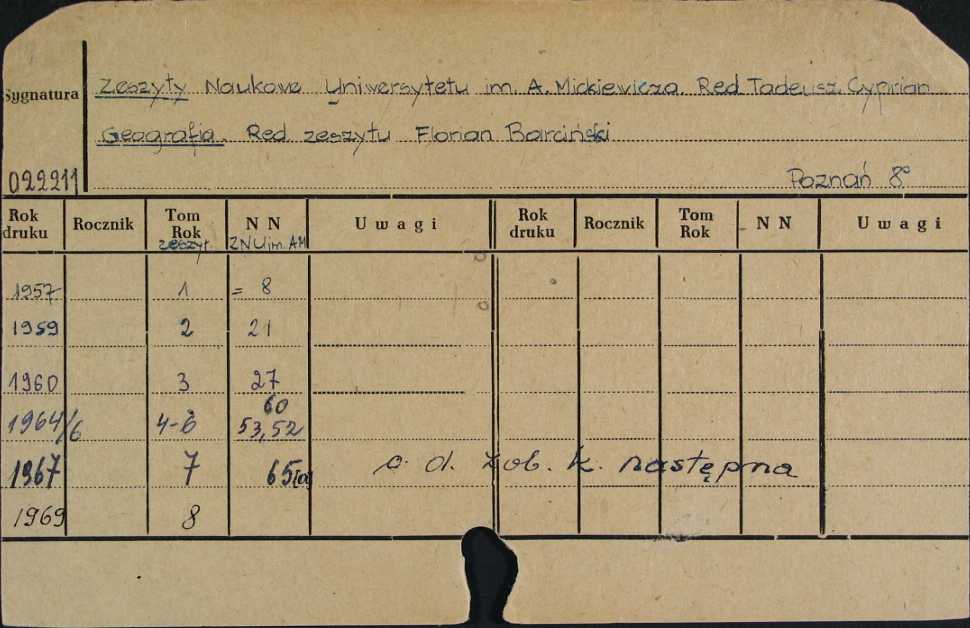 Zeszyty Naukowe Uniwersytetu im. A. Mickiewicza Red Tadeusz Cyprian
Sygnatura
Geografia. Red zeszytu Florian Barciński
022211
Poznań 8°
Rok druku Rocznik Tom Rok zeszyt N N ZNU im. AM Uwagi Rok druku Rocznik Tom Rok N N Uwagi
1957 1 = 8
1959 2 21
1960 3 27
60
1964/6 4-6 53,52
1967 7 65[a] c. d. zob. k. następna
1969 8